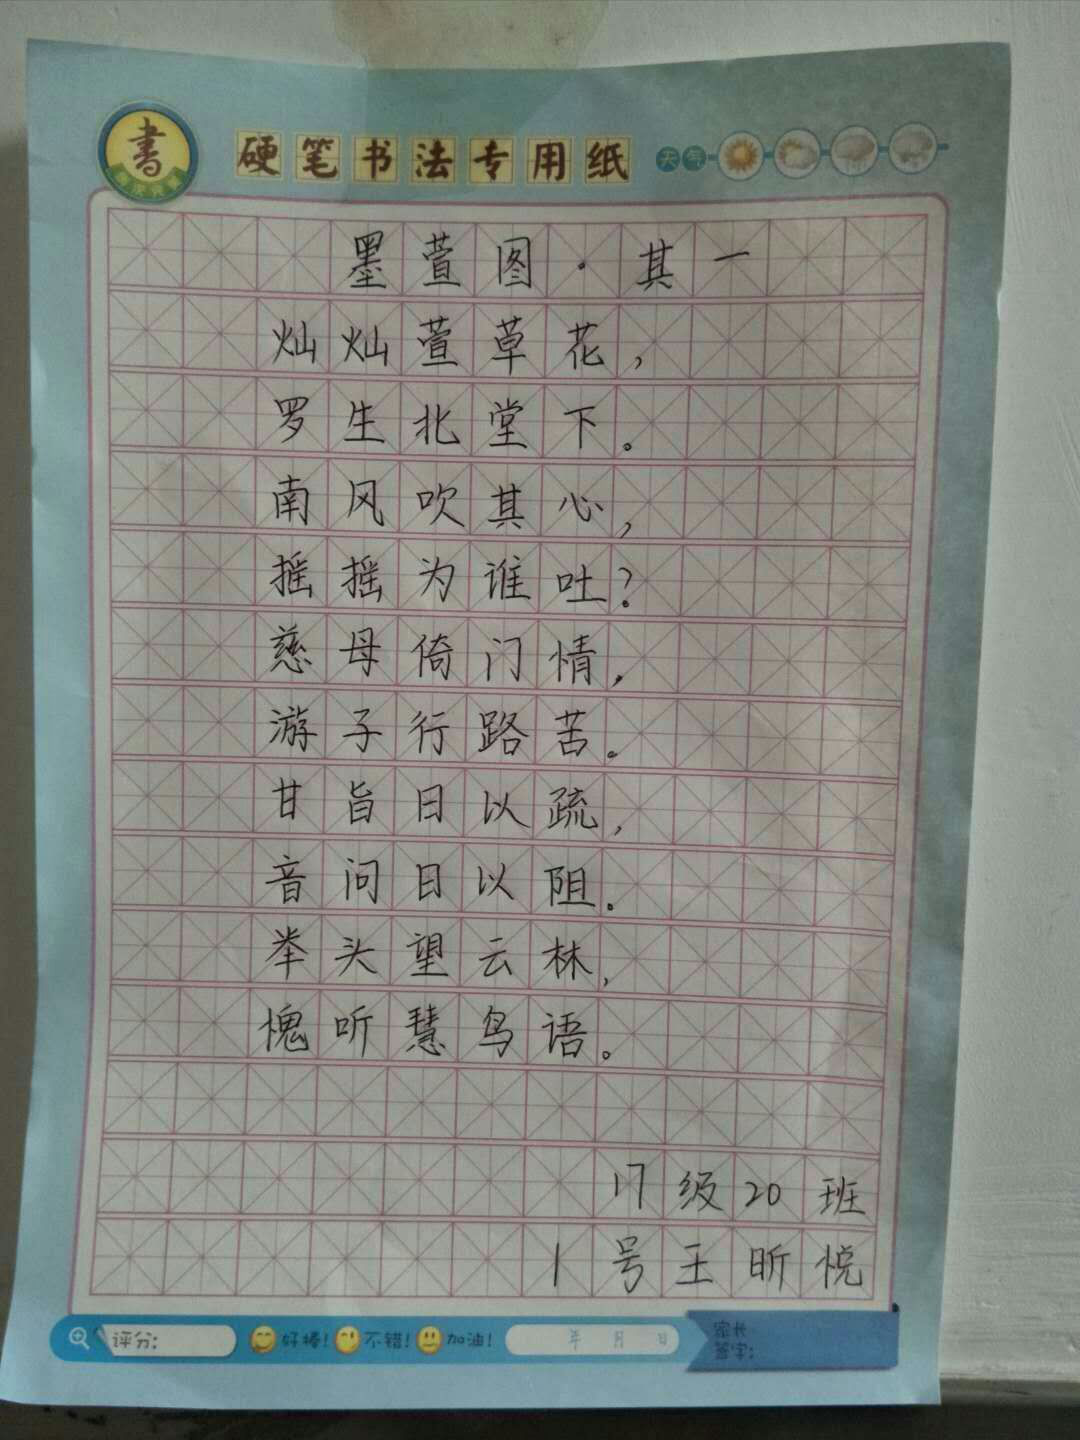 書
硬笔书法专用纸 天气
墨萱图·其一
灿灿萱草花，
罗生北堂下。
南风吹其心，
摇摇为谁吐？
慈母倚门情，
游子行路苦。
甘旨日以疏，
音问日以阻。
举头望云林，
愧听慧鸟语。
17级20班
1号王昕悦
评分： 好棒！ 不错！ 加油！ 年 月 日 家长
签字：